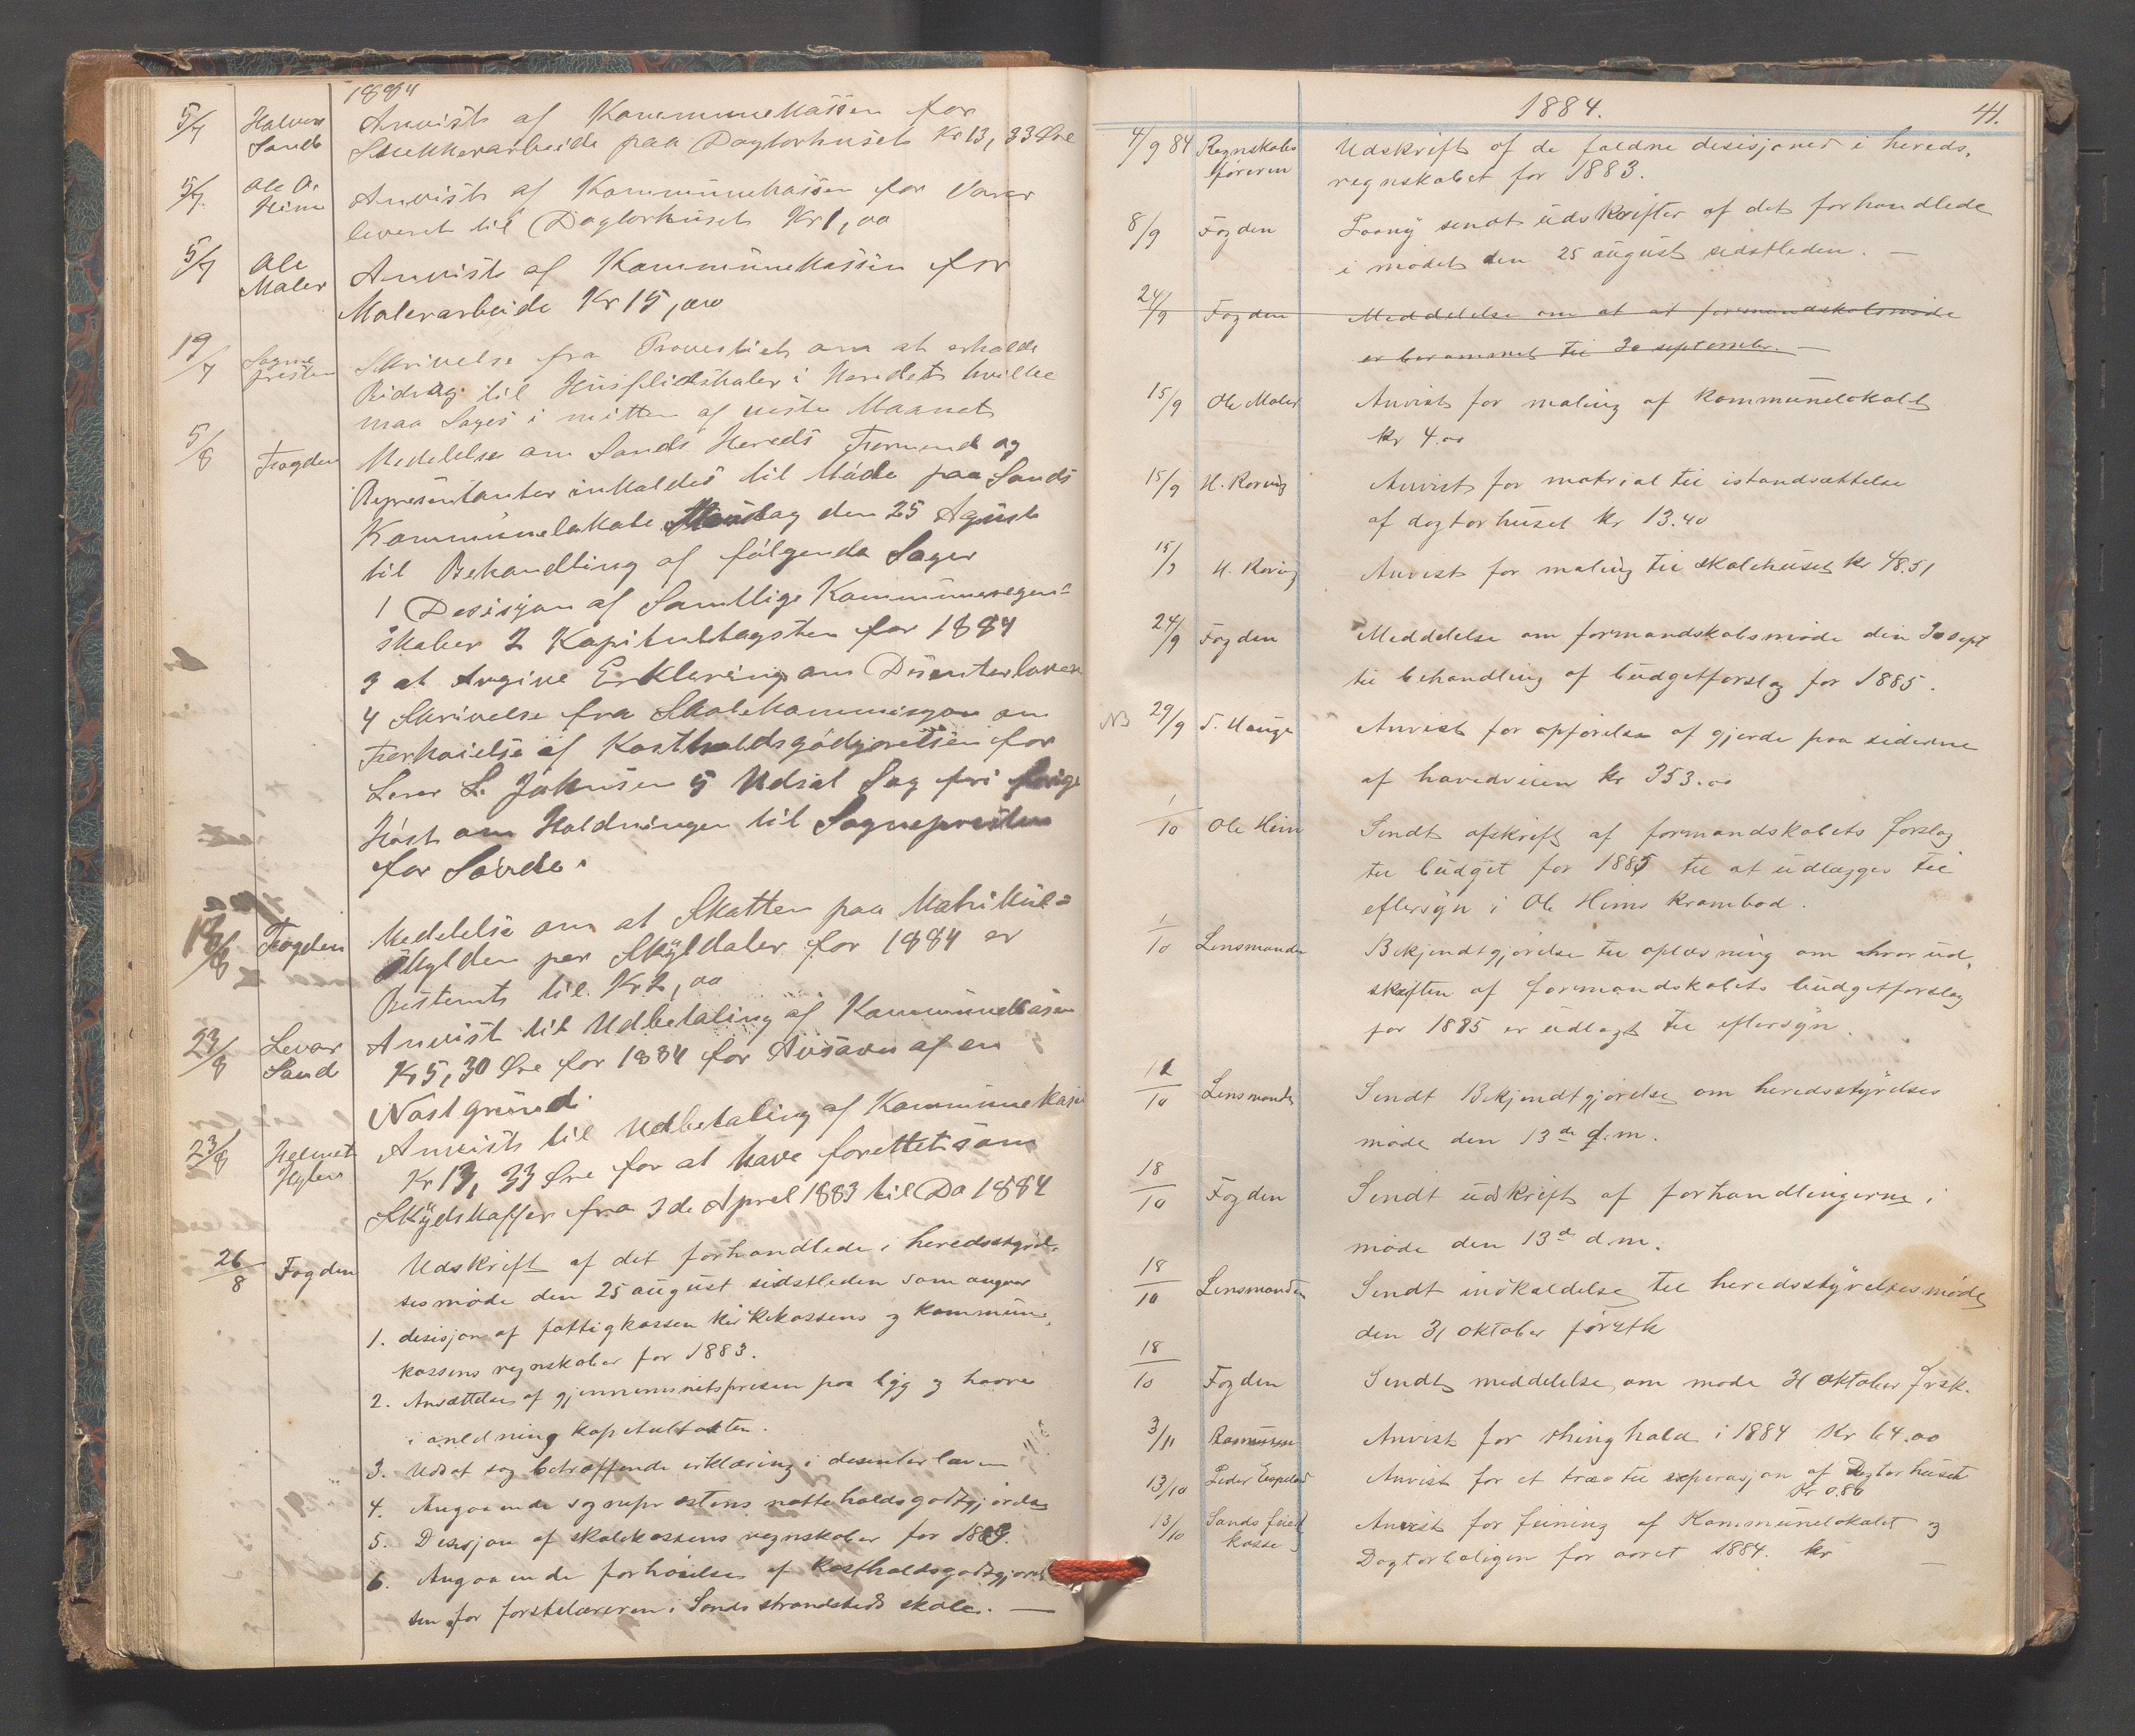 1884
5/7 Halvor Anvist af Kommunekassen for
Sand Snekkerarbeide paa Dogtorhuset Kr 13,33 Øre
5/7 Ole A. Anvist af Kommunekassen for Varer
Heim leveret til Dogtorhuset Kr 1,00
5/7 Ole Anvist af Kommunekassen for
Maler Malerarbeide Kr 15,00
19/7 Sogne Skrivelse fra Provestiet om at erholde
presten Bidrag til Husflidskoler i Heredet hvilke
maa Søges i mitten af neste Maanet
5/8 Fogden Medelelse om Sands Hereds Formend og
Representanter inkaldes til Møde paa Sands
Kommunelokale Mandag den 25 Agust
til Behandling af følgende Sager
1 Desisjon af Samtlige Kommuneregen=
skaber 2 Kapitultagsten for 1884
3 at Avgive Erklering om Disenterloven
4 Skrivelse fra Skolekommisjon om
Forhøielse af Kostholdsgodgjørelsen for
Lerer L. Johnsen 5 Udsat Sag fri forige
Høst om Holdningen til Sognepresten
for Søvde.
18/8 Fogden Medelelse om at Skatten paa Matrikul=
skylden per Skyldaler for 1884 er
Bestemt til Kr 2,00
23/8 Levar Anvist til Udbetaling af Kommunekassen
Sand Kr 5,30 Øre for 1884 for Avsavn af en
Nøstgrund.
23/8 Helmet Anvist til Udbetaling af Kommunekasen
Kr 13,33 Øre for at have forettet som
Skydskaffer fra 3de April 1883 til Do 1884
26/8 Fogden Udskrift af det forhandlede i heredsstyrel-
sesmøde den 25 august sidstleden som angaar
1. desisjon af fattigkassen kirkekassens og kommune-
kassens regnskaber for 1883.
2. Ansættelse af gjennemsnitsprisen paa byg og havre
i anledning kapitultaxten.
3. Udsat sag betræffende erklæring i desenterloven
4. Angaaende sogneprestens natteholdsgodtgjørelse
5. Desisjon af skolekassens regnskaber for 1883.
6. Angaaende forhøielse af kostholdsgodtgjørel
sen for forstelæreren i Sands strandsteds skole. —
1884. 41.
4/9 84 Regnskabs Udskrift af de faldne desisjoner i hereds-
føreren regnskabet for 1883.
8/9 Fogden Paany sendt udskrifter af det forhandlede
i mødet den 25 august sidstleden. —
24/9 Fogden Meddelelse om at at formandskabsmøde
er berammet til 30 september. —
15/9 Ole Maler Anvist for maling af kommunelokalet
kr 4.00
15/9 H. Røving Anvist for matrial til istandsættelse
af dogtorhuset kr 13.40
15/9 H. Røving Anvist for maling til skolehuset kr 48.51
24/9 Fogden Meddelelse om formandskabsmøde den 30 sept
til behandling af budgetforslag for 1885.
NB 29/9 T. Hauge Anvist for opførelse af gjerde paa siderne
af hovedveien kr 353.00
1/10 Ole Heim Sendt afskrift af formandskabets forslag
til budget for 1885 til at udlægges til
eftersyn i Ole Heims krambod.
1/10 Lensmanden Bekjendtgjørelse til oplæsning om hvor ud-
skriften af formandskabets budgetforslag
for 1885 er udlagt til eftersyn.
12/10 Lensmanden Sendt Bekjendtgjørelse om heredsstyrelses
møde den 13de d.m.
18/10 Fogden Sendt udskrift af forhandlingerne i
møde den 13de d.m.
18/10 Lensmanden Sendt indkaldelse til heredsstyrelsesmøde
den 31 oktober førstk
18/10 Fogden Sendt meddelelse om møde 31 oktober frstk.
3/11 Rasmussen Anvist for thinghold i 1884 Kr 64.00
13/10 Peder Espeland Anvist for et træ til reperasjon af Dogtorhuset
Kr 0.80
13/10 Sands feier Anvist for feining af Kommunelokalet og
kasse Dogtorboligen for aaret 1884. kr —